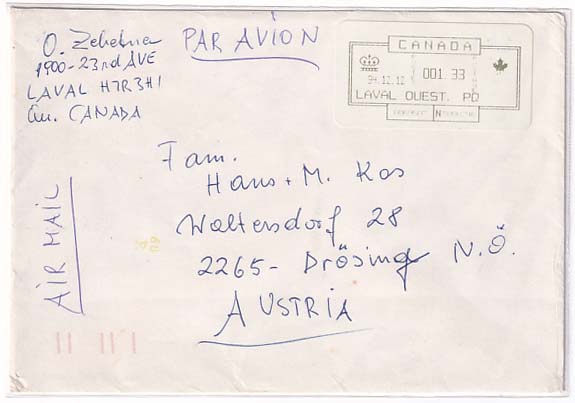 O. Zehetner
1900-23rd AVE
LAVAL H7R3H1
Qu. CANADA
PAR AVION
CANADA
94.12.12
001 33
LAVAL OUEST. PQ
Fam.
Hans + M. Kos
Waltersdorf 28
2265- Drösing N.Ö.
AUSTRIA
AIR MAIL